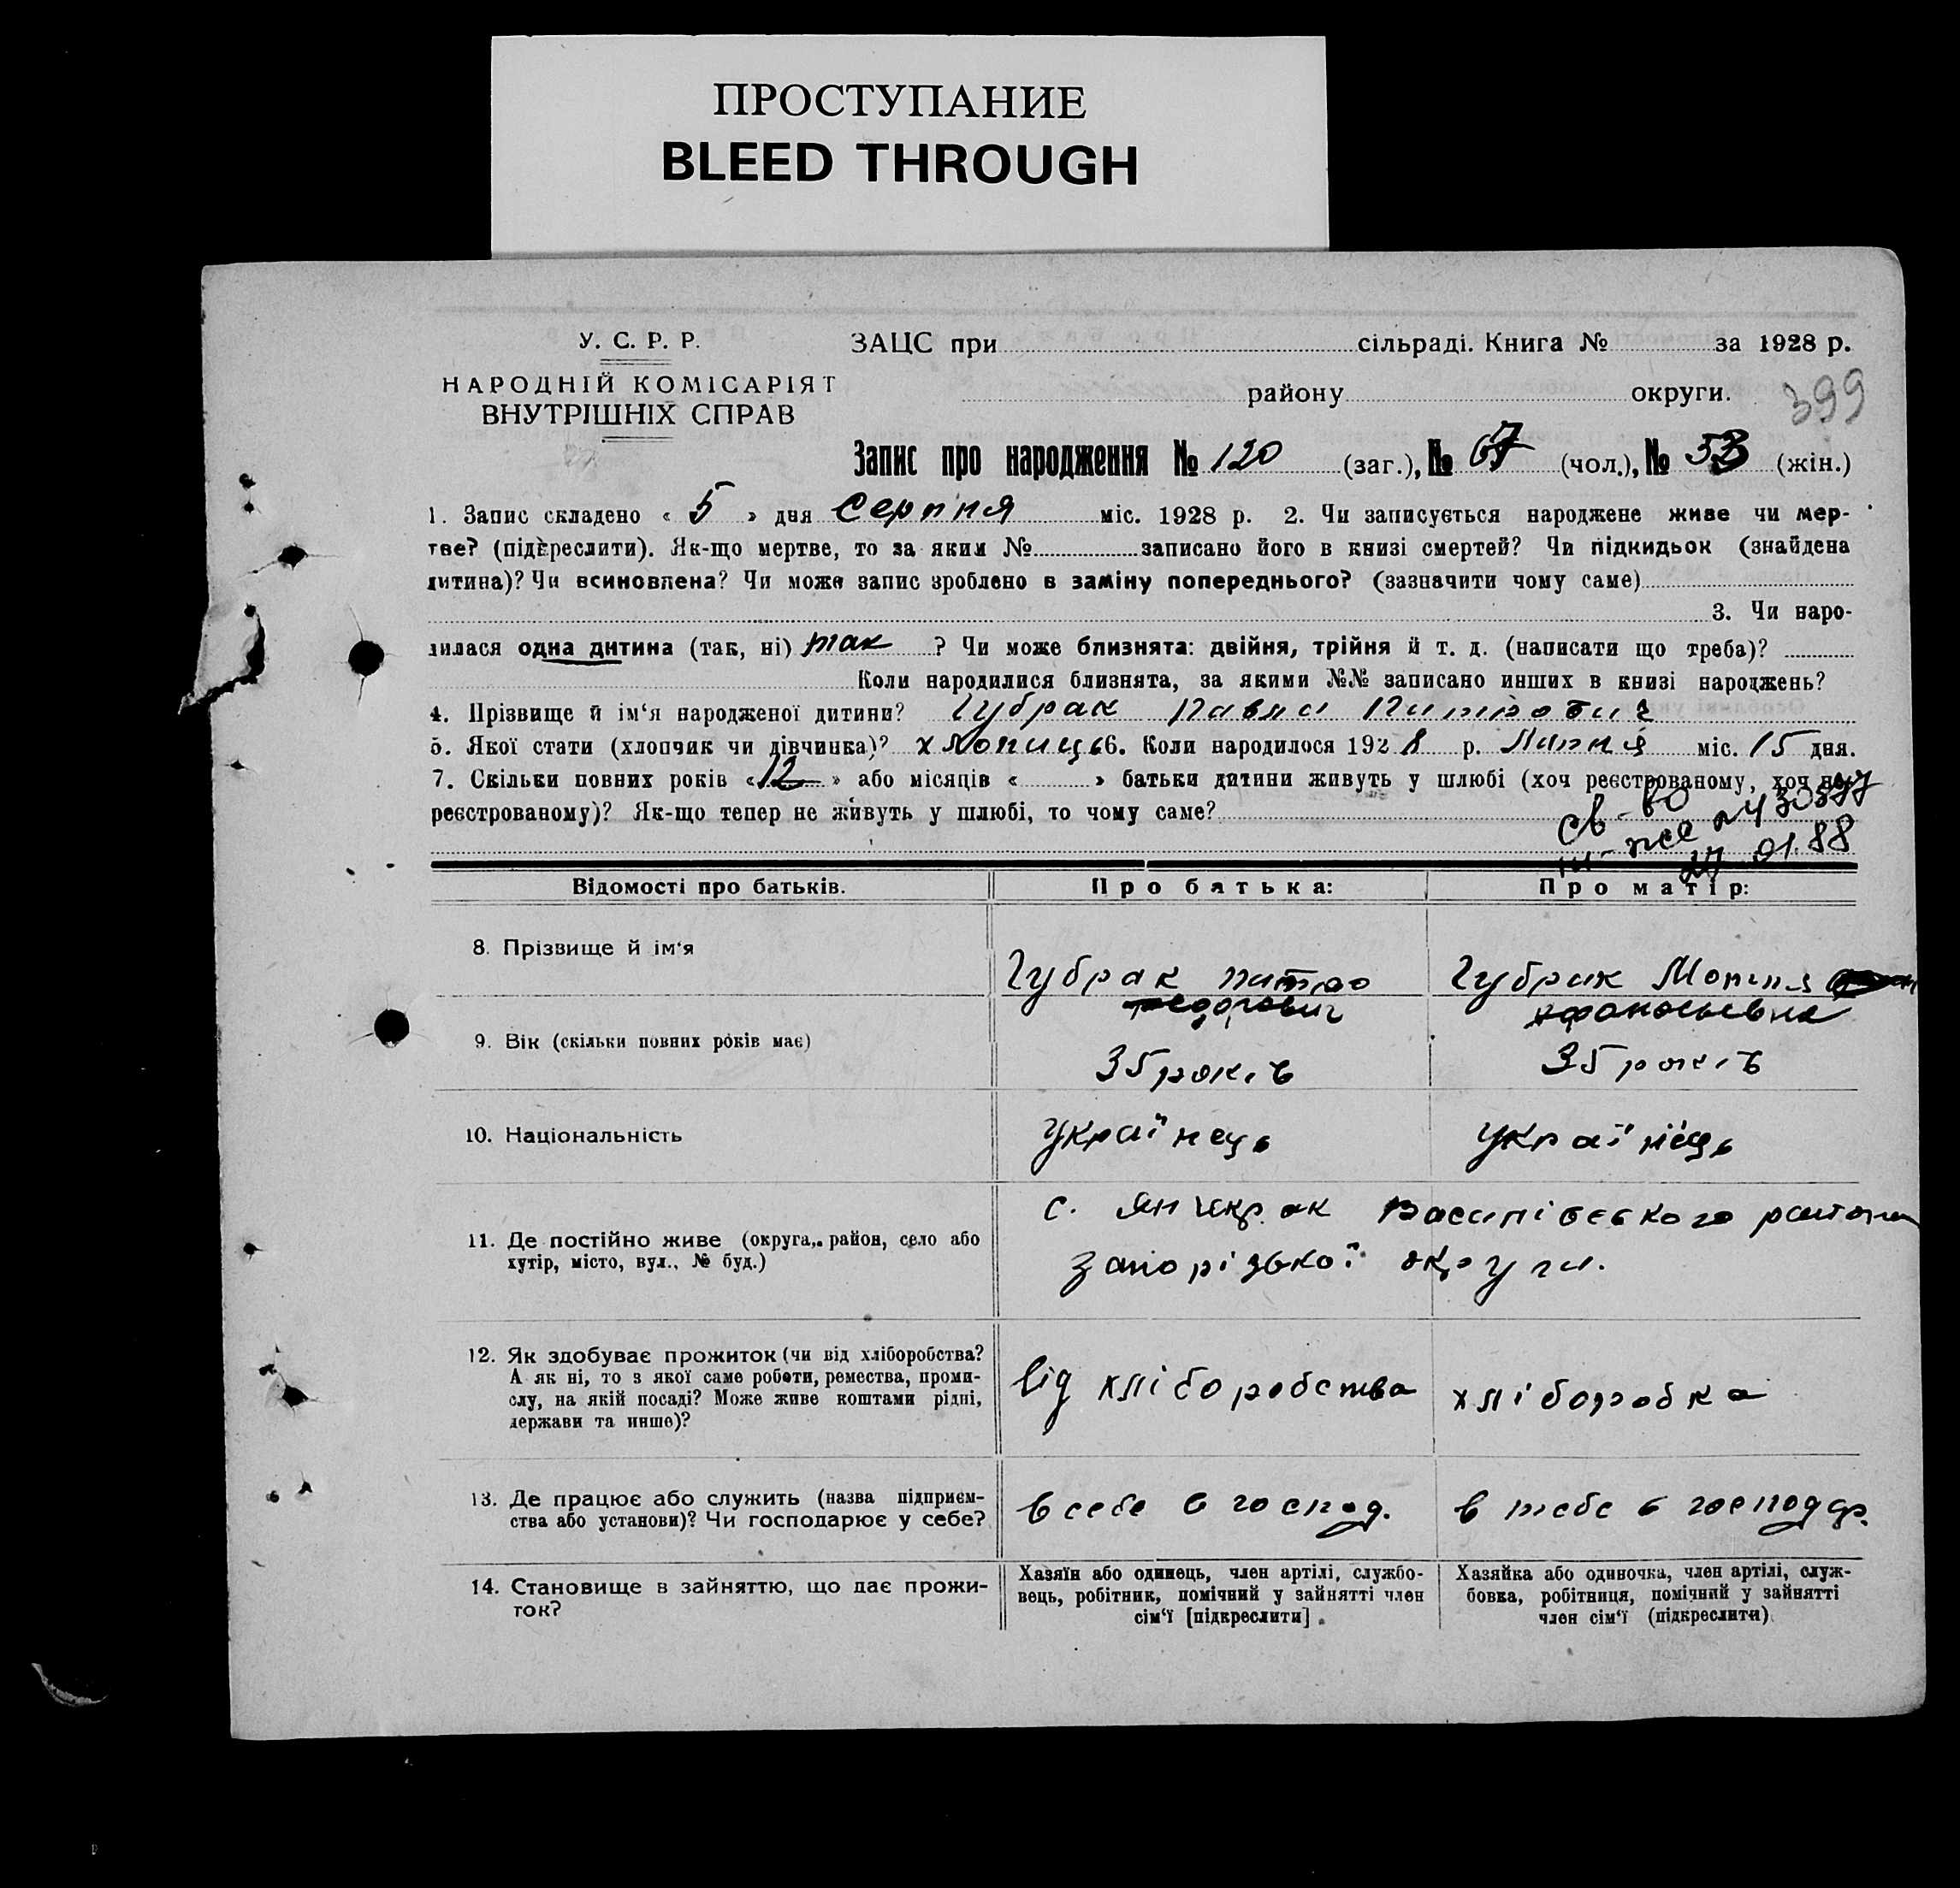 ПРОСТУПАНИЕ
BLEED THROUGH
У. С. Р. Р.
НАРОДНІЙ КОМІСАРІЯТ
ВНУТРІШНІХ СПРАВ
ЗАЦС при сільраді. Книга № за 1928 р.
району округи.
399
Запис про народження № 120 (заг.), № 67 (чол.), № 53 (жін.)
1. Запис складено « 5 » дня Серпня міс. 1928 р. 2. Чи записується народжене живе чи мер-
тве? (підкреслити). Як-що мертве, то за яким № записано його в книзі смертей? Чи підкидьок (знайдена
дитина)? Чи всиновлена? Чи може запис зроблено в заміну попереднього? (зазначити чому саме)
3. Чи наро-
дилася одна дитина (так, ні) так ? Чи може близнята: двійня, трійня й т. д. (написати що треба)?
Коли народилися близнята, за якими №№ записано инших в книзі народжень?
4. Прізвище й ім‘я народженої дитини? Губрак Павла Питрович
5. Якої стати (хлопчик чи дівчинка)? хлопиць 6. Коли народилося 1928 р. Липня міс. 15 дня.
7. Скільки повних років «12» або місяців « » батьки дитини живуть у шлюбі (хоч реєстрованому, хоч не
реєстрованому)? Як-що тепер не живуть у шлюбі, то чому саме?
св-во
01.88
Відомості про батьків. Про батька: Про матір:
8. Прізвище й ім‘я
Губрак питро Губрак
федорович
9. Вік (скільки повних років має)
35 років 35 років
10. Національність українець україніець
11. Де постійно живе (округа, район, село або
хутір, місто, вул., № буд.)
с. Янчекрак Василівського району
Запорізької округи.
12. Як здобуває прожиток (чи від хліборобства?
А як ні, то з якої саме роботи, ремества, проми-
слу, на якій посаді? Може живе коштами рідні,
держави та инше)?
від хліборобства хліборобка
13. Де працює або служить (назва підприєм-
ства або установи)? Чи господарює у себе?
в себе в господ. в тебе в господар.
14. Становище в зайняттю, що дає прожи-
ток?
Хазяїн або одинець, член артілі, службо-
вець, робітник, помічний у зайнятті член
сім‘ї [підкреслити]
Хазяйка або одиночка, член артілі, служ-
бовка, робітниця, помічний у зайнятті
член сім‘ї (підкреслити)